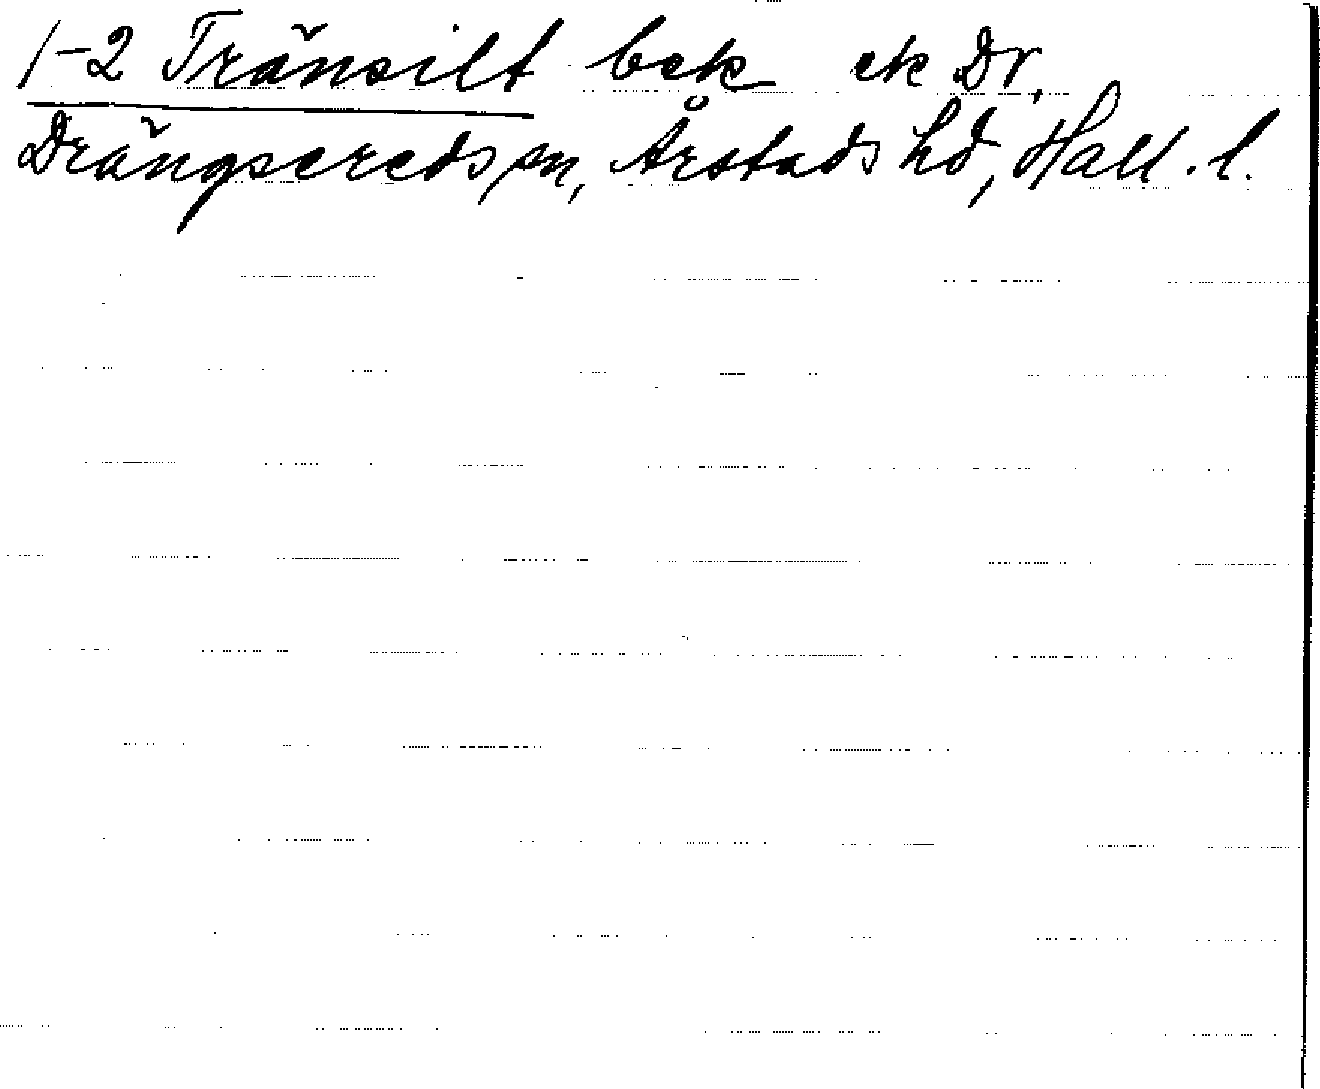 1-2 Tränsilt bek ek Dr,
Drängsereds sn, Årstads hd, Hall. l.